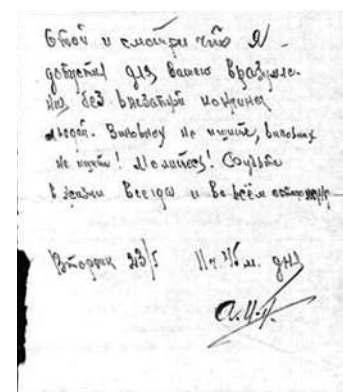 Стой и смотри что Я
допустил для вашего вразумле-
ния, без внезапной кончины
людей. Виновных не ищите, виновных
не ищите! Молитесь! Будьте
в жизни всегда и во всём
Вторник 23/5 11 ч. 45 м. дня